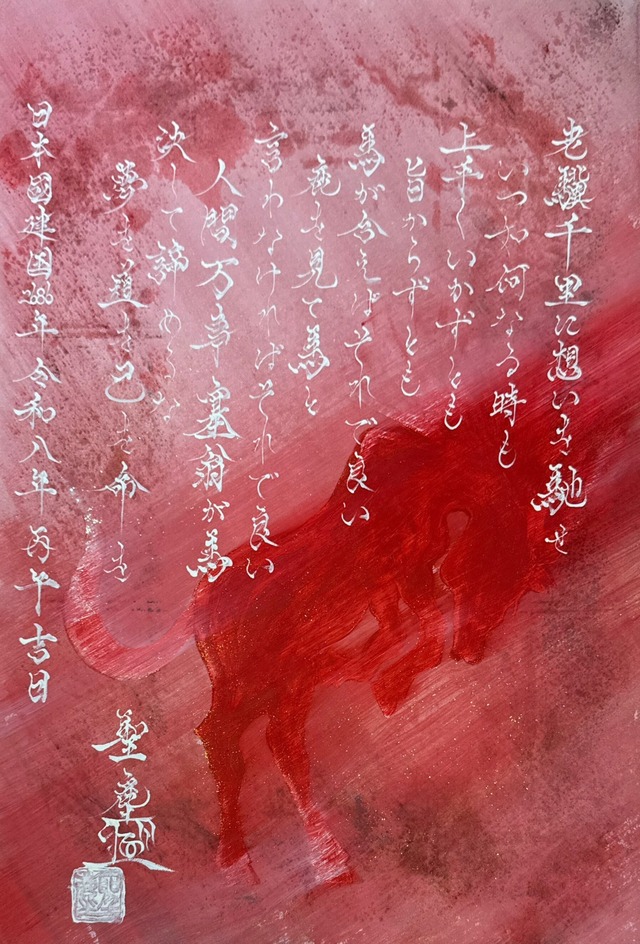 老驥千里に想いを馳せ
いつ如何なる時も
上手くいかずとも
旨からずとも
馬が合えばそれで良い
鹿を見て馬と
言わなければそれで良い
人間万事塞翁が馬
決して諦めるな
夢を道を己を命を
日本國建国2686年令和八年丙午吉日